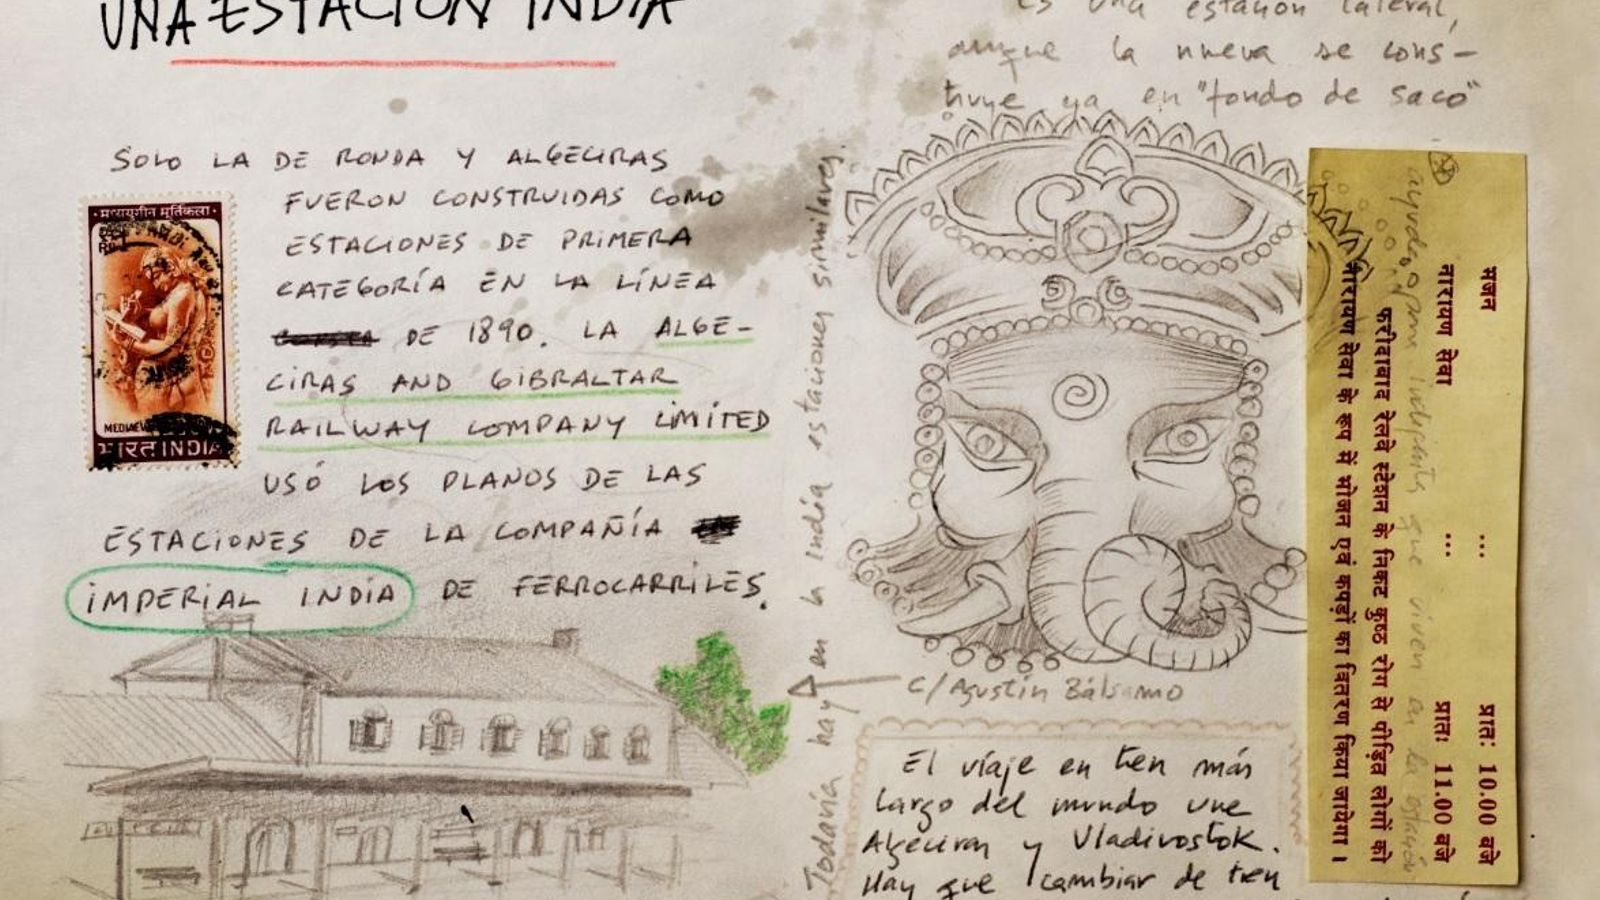 UNA ESTACIÓN INDIA
SOLO LA DE RONDA Y ALGECIRAS
FUERON CONSTRUIDAS COMO
ESTACIONES DE PRIMERA
CATEGORÍA EN LA LÍNEA
DE 1890. LA ALGE-
CIRAS AND GIBRALTAR
RAILWAY COMPANY LIMITED
USÓ LOS PLANOS DE LAS
ESTACIONES DE LA COMPAÑÍA
IMPERIAL INDIA DE FERROCARRILES.
मध्ययुगीन मूर्तिकला
MEDIAEV
भारत INDIA
Todavía hay en la India estaciones similares.
es una estación lateral,
aunque la nueva se cons-
truye ya en "fondo de saco"
C/ Agustín Bálsamo
El viaje en tren más
largo del mundo une
Algeciras y Vladivostok.
Hay que cambiar de tren
भजन ... प्रात: 10.00 बजे
नारायण सेवा ... प्रातः 11.00 बजे
फरीदाबाद रेलवे स्टेशन के निकट कुष्ठ रोग से पीड़ित लोगों को
नारायण सेवा के रूप में भोजन एवं कपड़ों का वितरण किया जायेगा ।
que viven en la estación